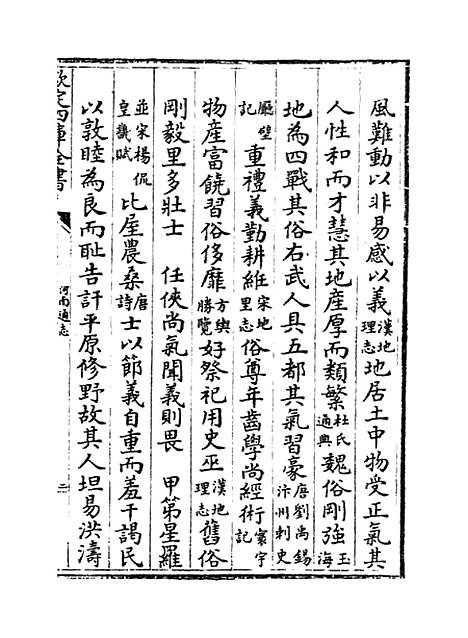 風難動以非易感以義漢地理志地居土中物受正氣其
人性和而才慧其地產厚而類繁杜氏通典魏俗剛強玉海
地為四戰其俗右武人具五都其氣習豪唐劉禹錫汴州刺史
廳壁記重禮義勤耕絍宋地里志俗尊年齒學尚經術行寰宇記
物產富饒習俗侈靡方輿勝覽好祭祀用史巫漢地理志舊俗
剛毅里多壯士 任俠尚氣聞義則畏 甲第星羅
並宋楊侃皇畿賦比屋農桑唐詩士以節義自重而羞干謁民
以敦睦為良而耻告訐平原修野故其人坦易洪濤
欽定四庫全書
河南通志
二